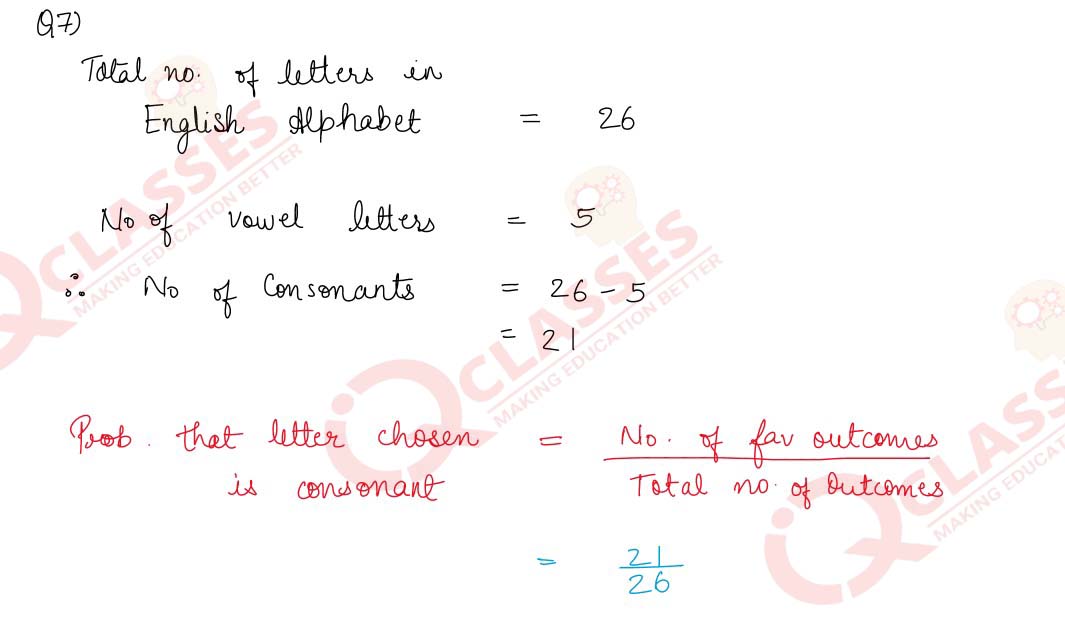 Q7)
Total no. of letters in
English Alphabet = 26
No of vowel letters = 5
∴ No of Consonants = 26 - 5
= 21
Prob. that letter chosen = No. of fav outcomes
is consonant Total no. of Outcomes
= 21
26
IQ CLASSES
MAKING EDUCATION BETTER
IQ CLASSES
MAKING EDUCATION BETTER
IQ CLASSES
MAKING EDUCAT